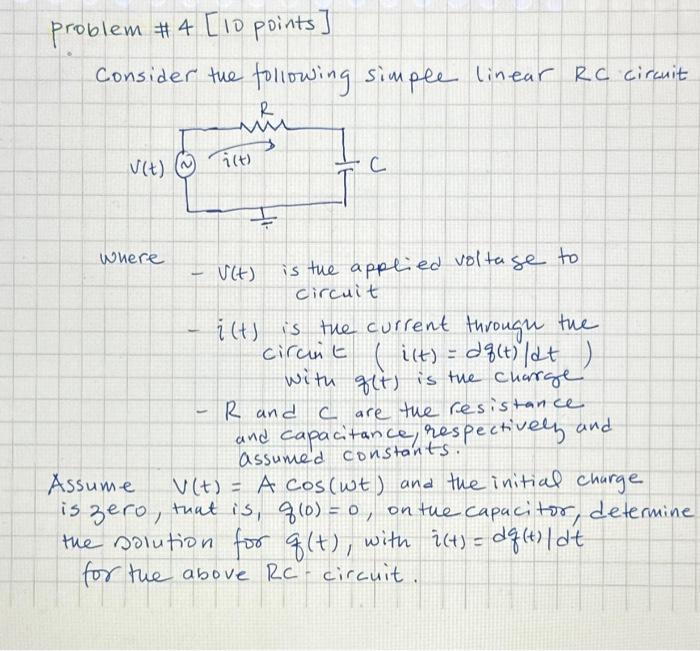 problem # 4 [10 points]
Consider the following simple linear RC circuit
R
V(t) i(t) C
where
- V(t) is the applied voltage to
circuit
- i(t) is the current through the
circuit ( i(t) = dq(t)/dt )
with q(t) is the charge
- R and C are the resistance
and capacitance, respectively and
assumed constants.
Assume V(t) = A cos(ωt) and the initial charge
is zero, that is, q(0) = 0, on the capacitor, determine
the solution for q(t), with i(t) = dq(t)/dt
for the above RC-circuit.